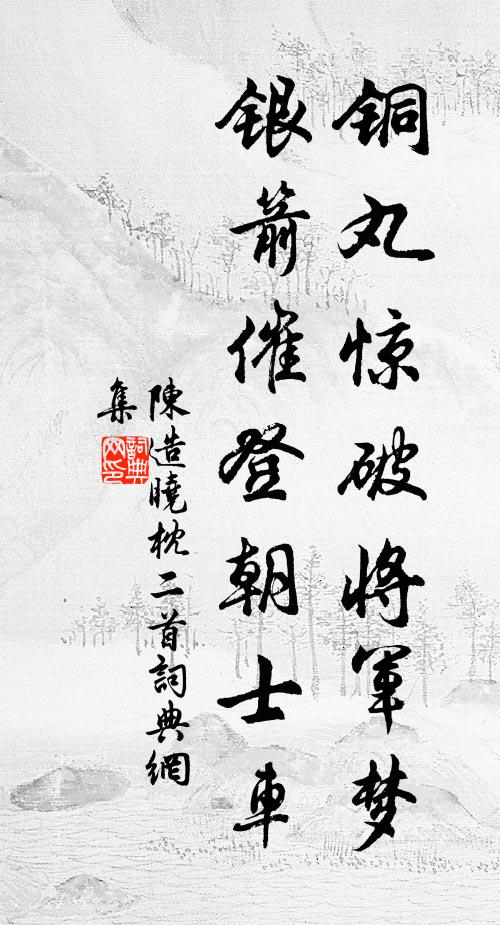 铜丸惊破将军梦
银箭催登朝士車
陳造曉枕二首詞典網
集
詞典网印